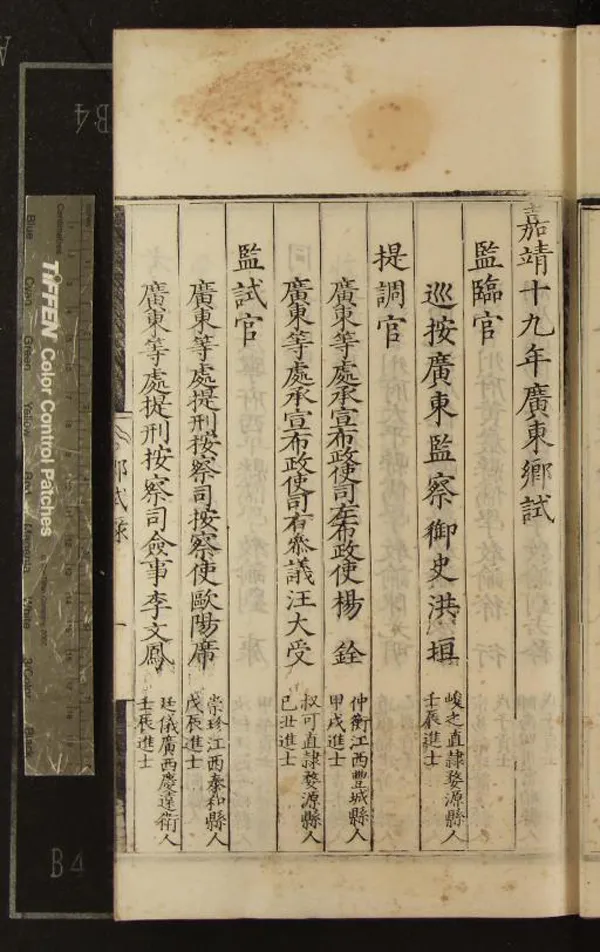 嘉靖十九年廣東鄉試
監臨官
巡按廣東監察御史洪垣
峻之直隸婺源縣人
壬辰進士
提調官
廣東等處承宣布政使司左布政使楊銓
仲衡江西豐城縣人
甲戌進士
廣東等處承宣布政使司右叅議汪大受
叔可直隸婺源縣人
己丑進士
監試官
廣東等處提刑按察司按察使歐陽席
崇珍江西泰和縣人
戊辰進士
廣東等處提刑按察司僉事李文鳳
廷儀廣西慶遠衛人
壬辰進士
鄉試錄
一
TIFFEN Color Control Patches
Centimetres
Blue
Cyan
Green
Yellow
Red
Magenta
White
3/Color
Black
B4
B4
A